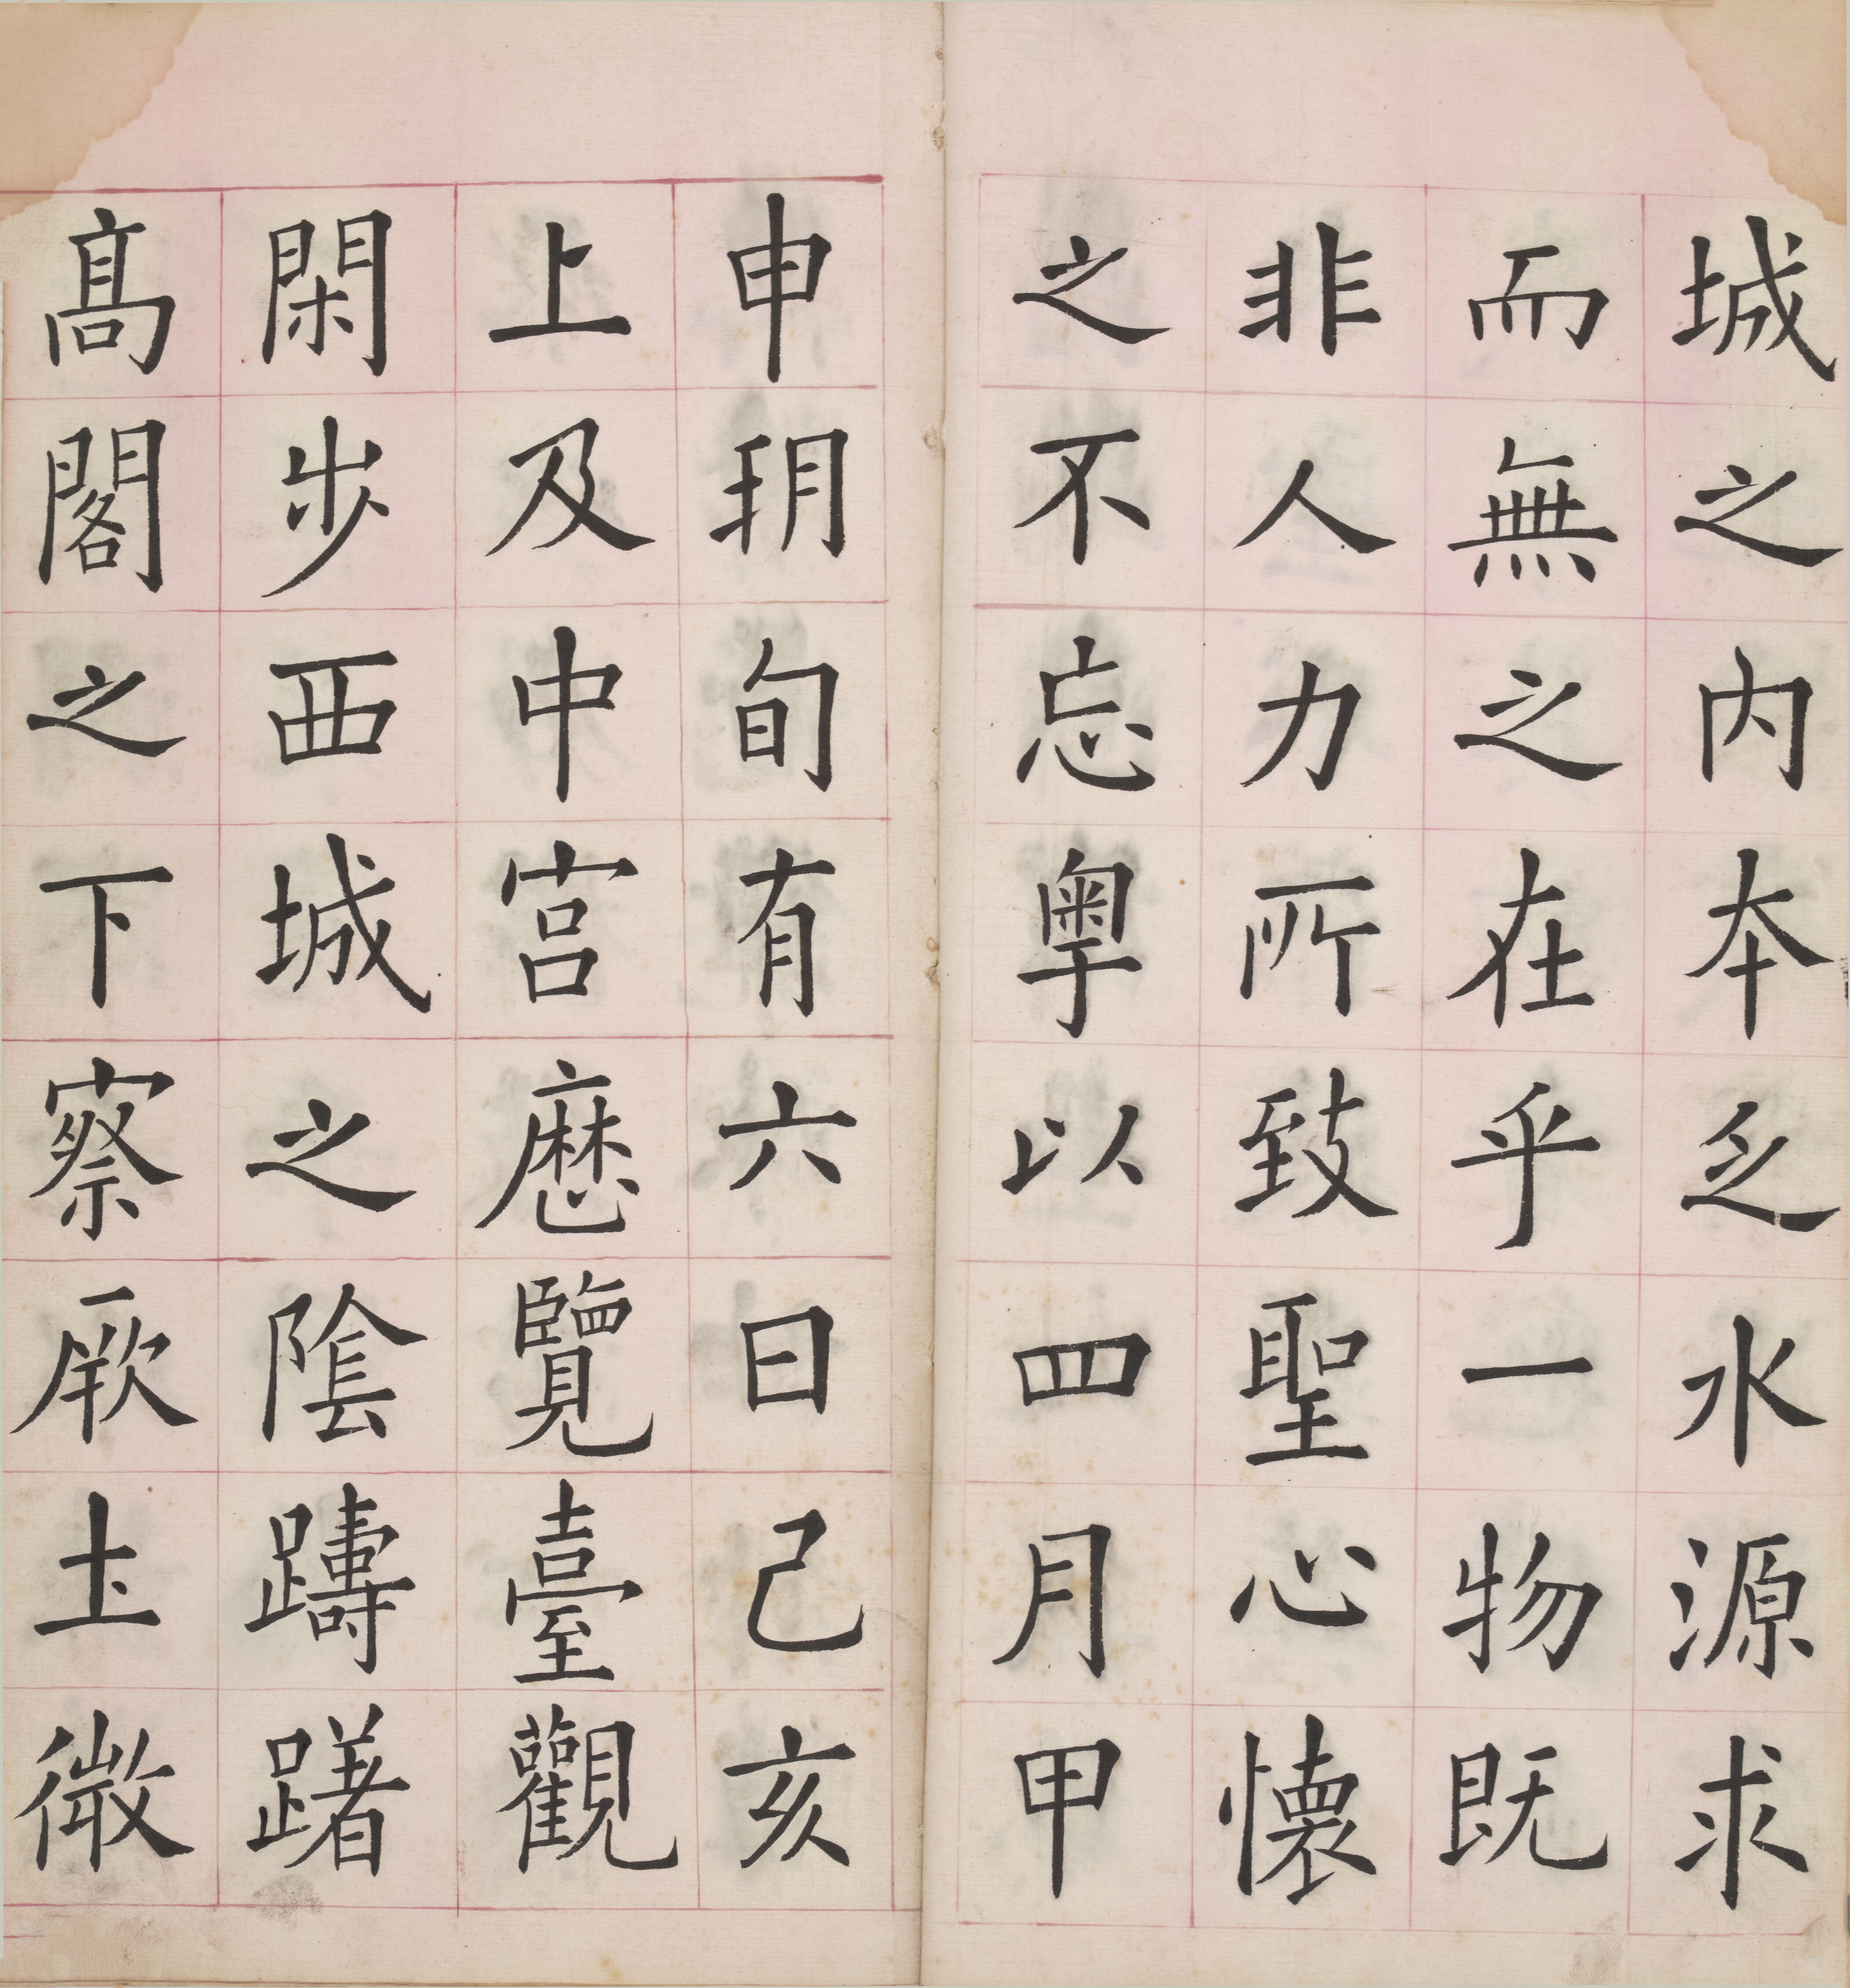 城之內本乏水源求
而無之在乎一物既
非人力所致聖心懷
之不忘粤以四月甲
申朔旬有六日己亥
上及中宮歷覽臺觀
閑步西城之陰躊躇
高閣之下察厥土微